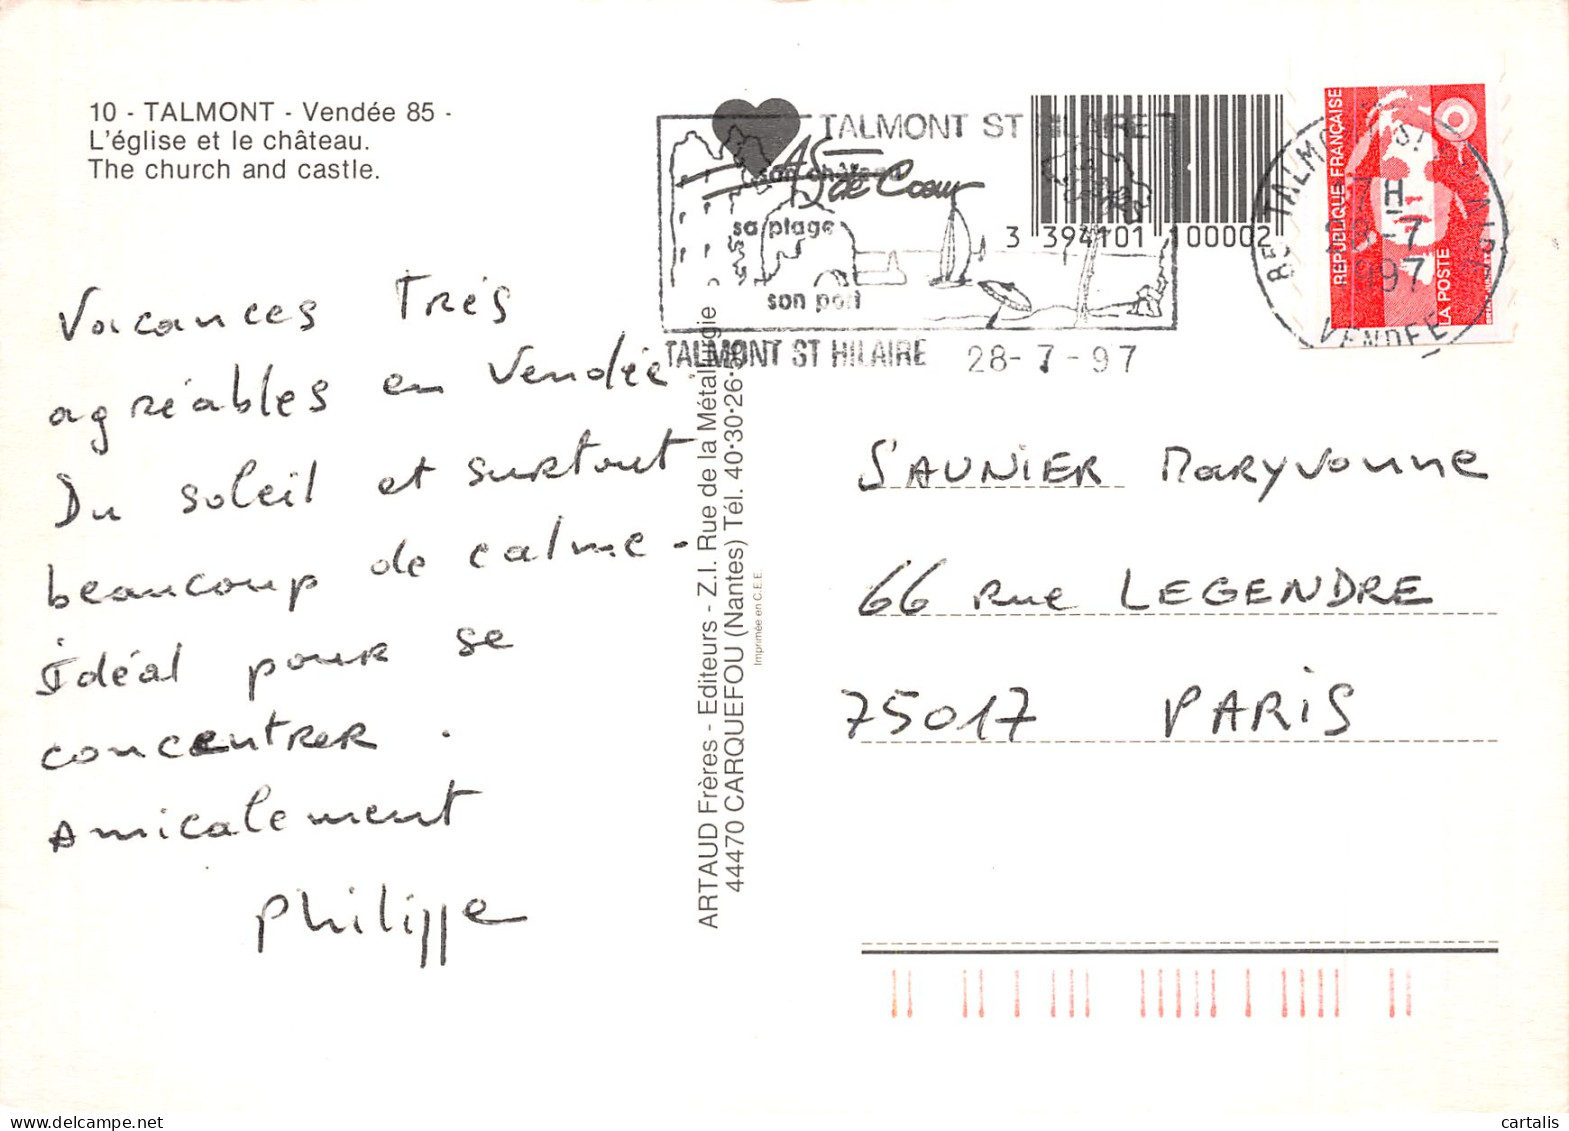 10 - TALMONT - Vendée 85 -
L'église et le château.
The church and castle.
TALMONT ST HILAIRE
son château
AS de Coeur
sa plage
son port
TALMONT ST HILAIRE 28-7-97
3 394101 100002
REPUBLIQUE FRANÇAISE
LA POSTE
85 TALMONT ST HILAIRE
17H
28-7
1997
VENDEE
Vacances Trés
agréables en Vendée.
Du soleil et surtout
beaucoup de calme -
Idéal pour se
concentrer .
Amicalement
Philippe
ARTAUD Frères - Editeurs - Z.I. Rue de la Métallurgie
44470 CARQUEFOU (Nantes) Tél. 40·30·26·
Imprimée en C.E.E.
SAUNIER Maryvonne
66 Rue LEGENDRE
75017 PARIS
delcampe.net
cartalis